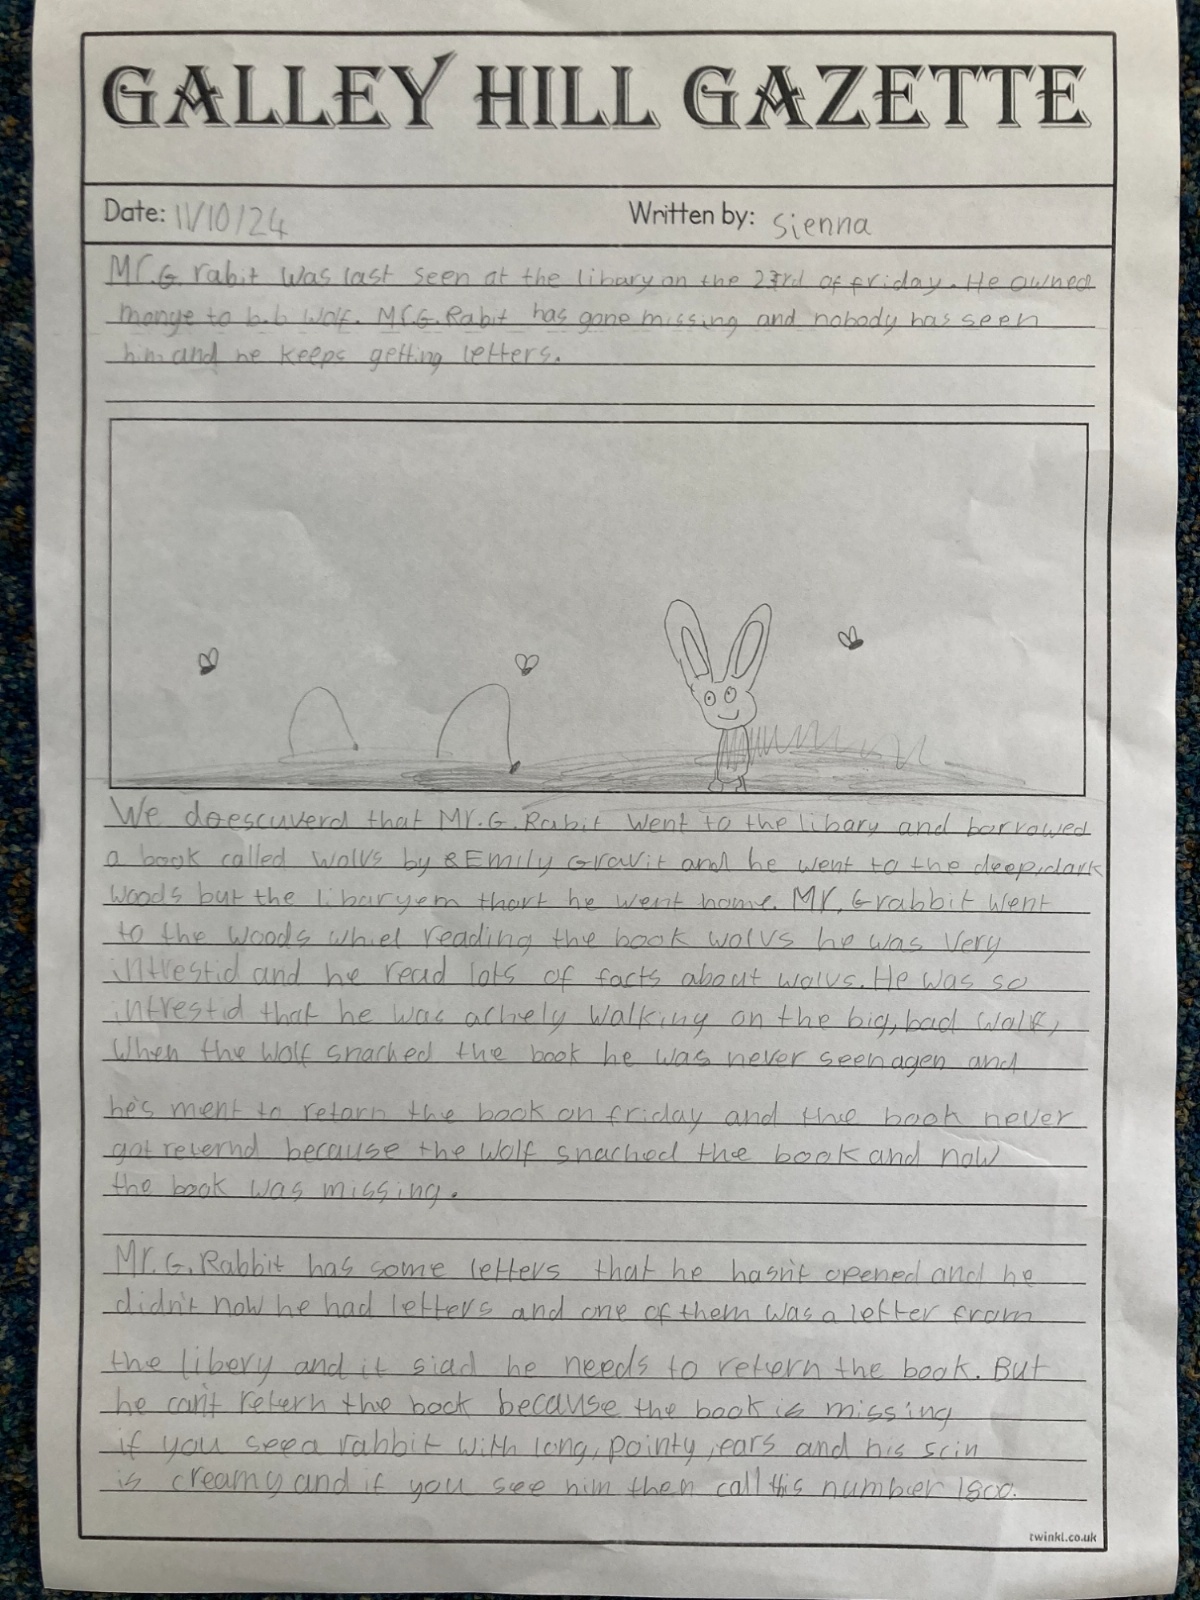 GALLEY HILL GAZETTE
Date: 11/10/24 Written by: Sienna
Mr.G. rabit was last seen at the libary on the 23rd of friday. He owned
monye to b.b wolf. Mr.G.Rabit has gone missing and nobody has seen
him and he keeps getting letters.
We doescuverd that Mr.G.Rabit went to the libary and borrowed
a book called wolvs by Emily Gravit and he went to the deep,dark
woods but the libaryem thort he went home. Mr.Grabbit went
to the woods whiel reading the book wolvs he was very
intrestid and he read lots of facts about wolvs. He was so
intrestid that he was achely walking on the big, bad walf,
When the wolf snached the book he was never seen agen and
he's ment to retorn the book on friday and the book never
got reternd because the wolf snached the book and now
the book was missing.
Mr.G.Rabbit has some letters that he hasn't opened and he
didn't now he had letters and one of them was a letter from
the libery and it siad he needs to retern the book. But
he can't retern the bock because the book is missing
if you see a rabbit with long, pointy, ears and his scin
is creamy and if you see him then call this number 1800.
twinkl.co.uk